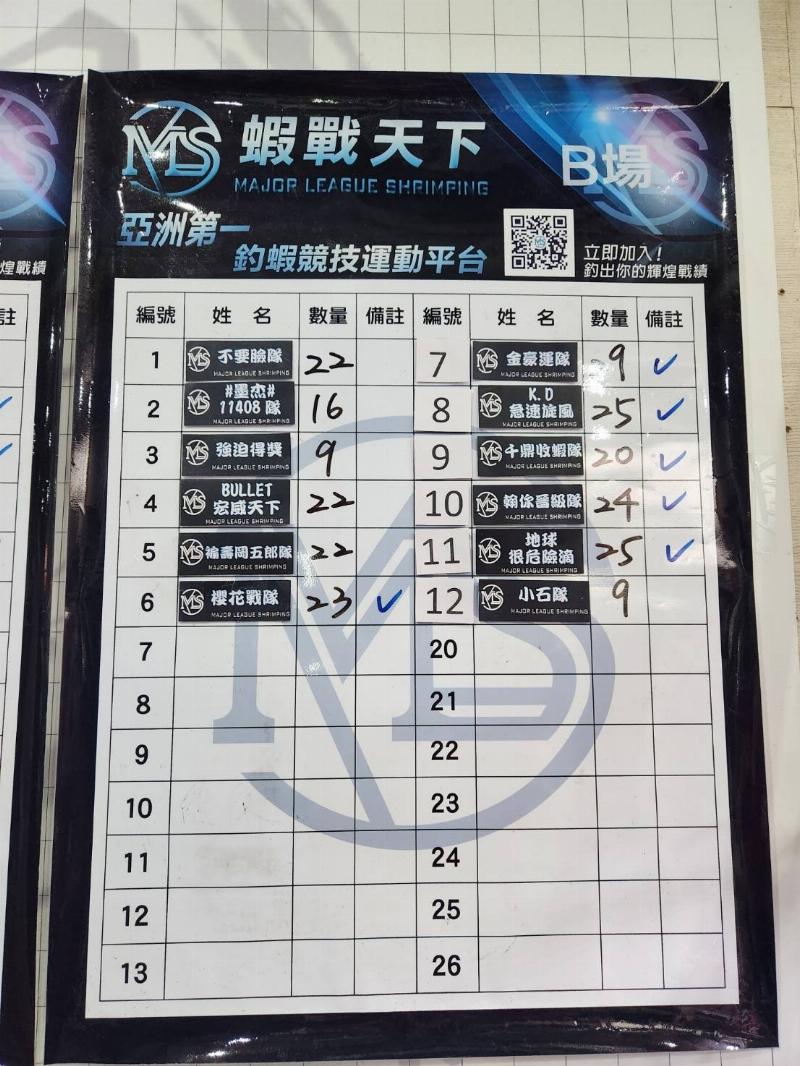 MS 蝦戰天下
MAJOR LEAGUE SHRIMPING
B場
亞洲第一
釣蝦競技運動平台
立即加入!
釣出你的輝煌戰績
煌戰績
註
編號 姓名 數量 備註 編號 姓名 數量 備註
1 MS 不要臉隊 MAJOR LEAGUE SHRIMPING 22 7 MS 金豪運隊 MAJOR LEAGUE SHRIMPING 29 ✓
2 MS #墨杰# 11408 隊 MAJOR LEAGUE SHRIMPING 16 8 MS K.D 急速旋風 MAJOR LEAGUE SHRIMPING 25 ✓
3 MS 強迫得獎 MAJOR LEAGUE SHRIMPING 9 9 MS 千鼎收蝦隊 MAJOR LEAGUE SHRIMPING 20 ✓
4 MS BULLET 宏威天下 MAJOR LEAGUE SHRIMPING 22 10 MS 翰你晉級隊 MAJOR LEAGUE SHRIMPING 24 ✓
5 MS 壽岡五郎隊 MAJOR LEAGUE SHRIMPING 22 11 MS 地球 很危險滴 MAJOR LEAGUE SHRIMPING 25 ✓
6 MS 櫻花戰隊 MAJOR LEAGUE SHRIMPING 23 ✓ 12 MS 小石隊 MAJOR LEAGUE SHRIMPING 9
7 20
8 21
9 22
10 23
11 24
12 25
13 26